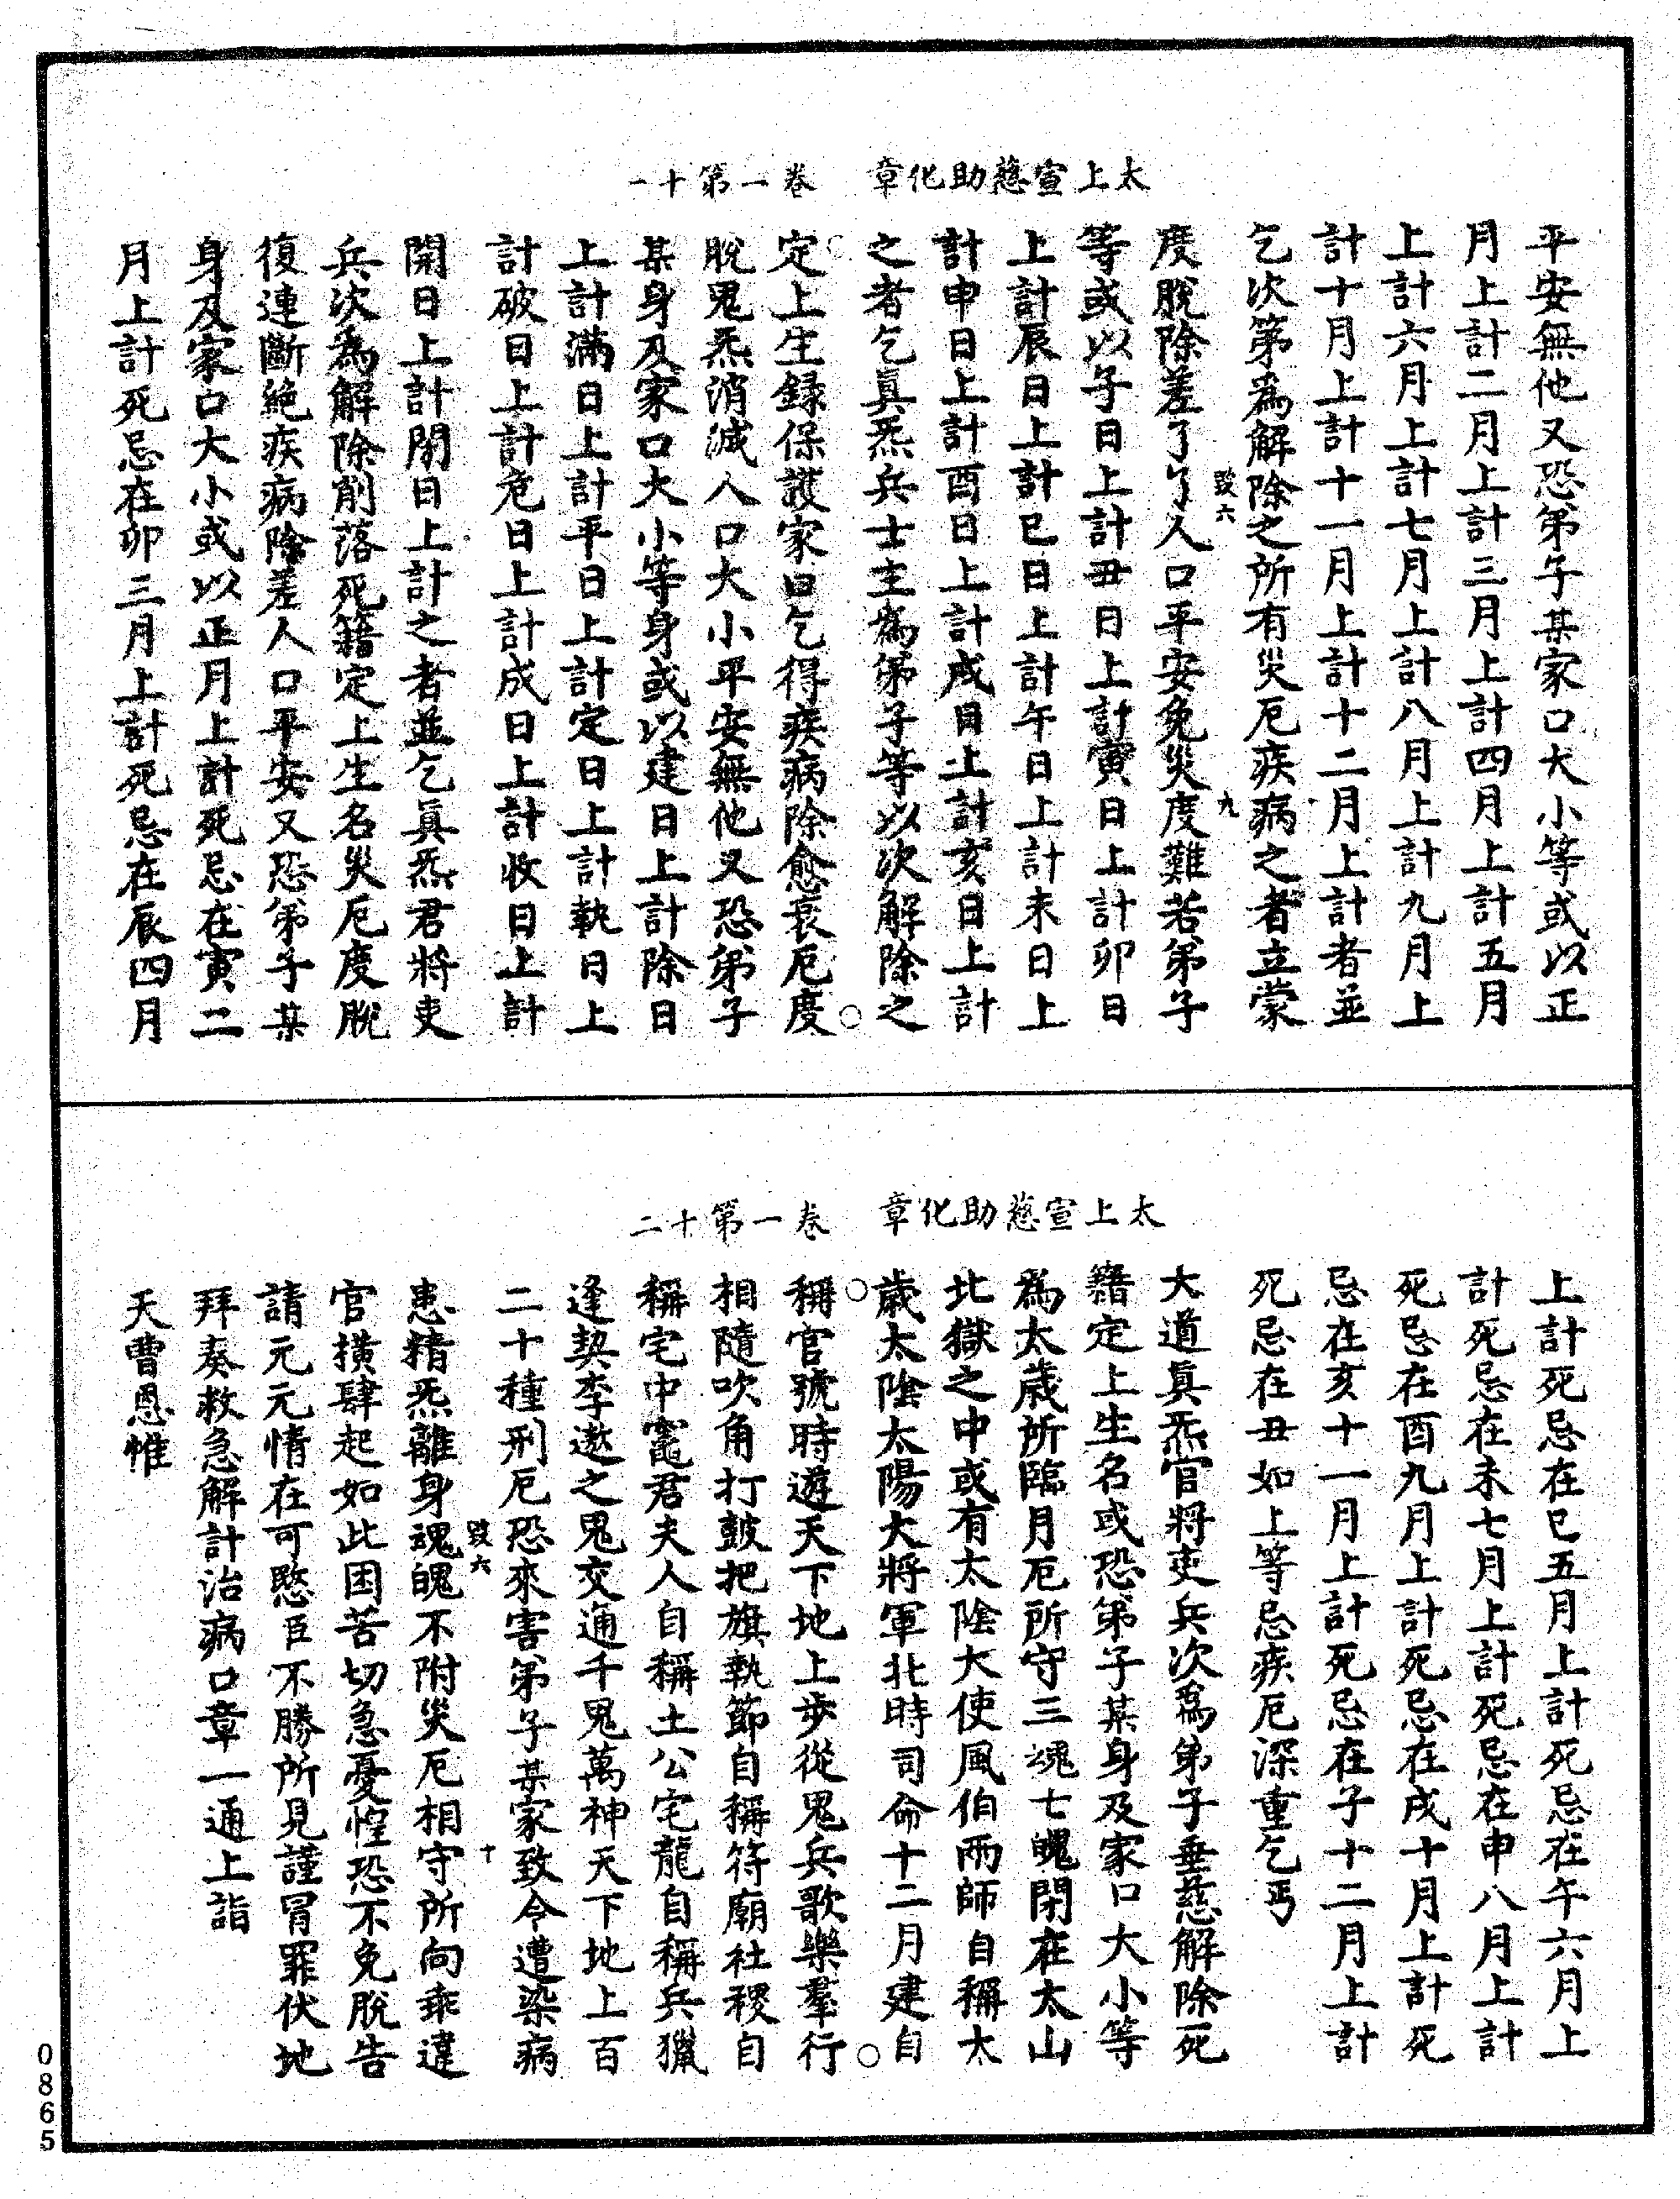 太上宣慈助化章　卷一第十一
平安無他又恐弟子某家口大小等或以正
月上計二月上計三月上計四月上計五月
上計六月上計七月上計八月上計九月上
計十月上計十一月上計十二月上計者並
乞次第為解除之所有災厄疾病之者立蒙
度脫除差了了人口平安免災度難若弟子
毀六　九
等或以子日上計丑日上計寅日上計卯日
上計辰日上計巳日上計午日上計未日上
計申日上計酉日上計戌日上計亥日上計
之者乞真炁兵士主為弟子等以次解除之
定上生録保護家口乞得疾病除愈衰厄度
脫鬼炁消滅人口大小平安無他又恐弟子
某身及家口大小等身或以建日上計除日
上計滿日上計平日上計定日上計執日上
計破日上計危日上計成日上計收日上計
開日上計閉日上計之者並乞真炁君將吏
兵次為解除削落死籍定上生名災厄度脫
復連斷絕疾病除差人口平安又恐弟子某
身及家口大小或以正月上計死忌在寅二
月上計死忌在卯三月上計死忌在辰四月
太上宣慈助化章　卷一第十二
上計死忌在巳五月上計死忌在午六月上
計死忌在未七月上計死忌在申八月上計
死忌在酉九月上計死忌在戌十月上計死
忌在亥十一月上計死忌在子十二月上計
死忌在丑如上等忌疾厄深重乞丐
大道真炁官將吏兵次為弟子垂慈解除死
籍定上生名或恐弟子某身及家口大小等
為太歲所臨月厄所守三魂七魄閉在太山
北獄之中或有太陰大使風伯雨師自稱太
歲太陰太陽大將軍北時司命十二月建自
稱官號時遊天下地上步從鬼兵歌樂羣行
相隨吹角打鼓把旗執節自稱符廟社稷自
稱宅中竈君夫人自稱土公宅龍自稱兵獵
逢契李遨之鬼交通千鬼萬神天下地上百
二十種刑厄恐來害弟子某家致令遭染病
毀六　十
患精炁離身魂魄不附災厄相守所向乖違
官橫肆起如此困苦切急憂惶恐不免脫告
請元元情在可愍臣不勝所見謹冒罪伏地
拜奏救急解計治病口章一通上詣
天曹恩惟
0865